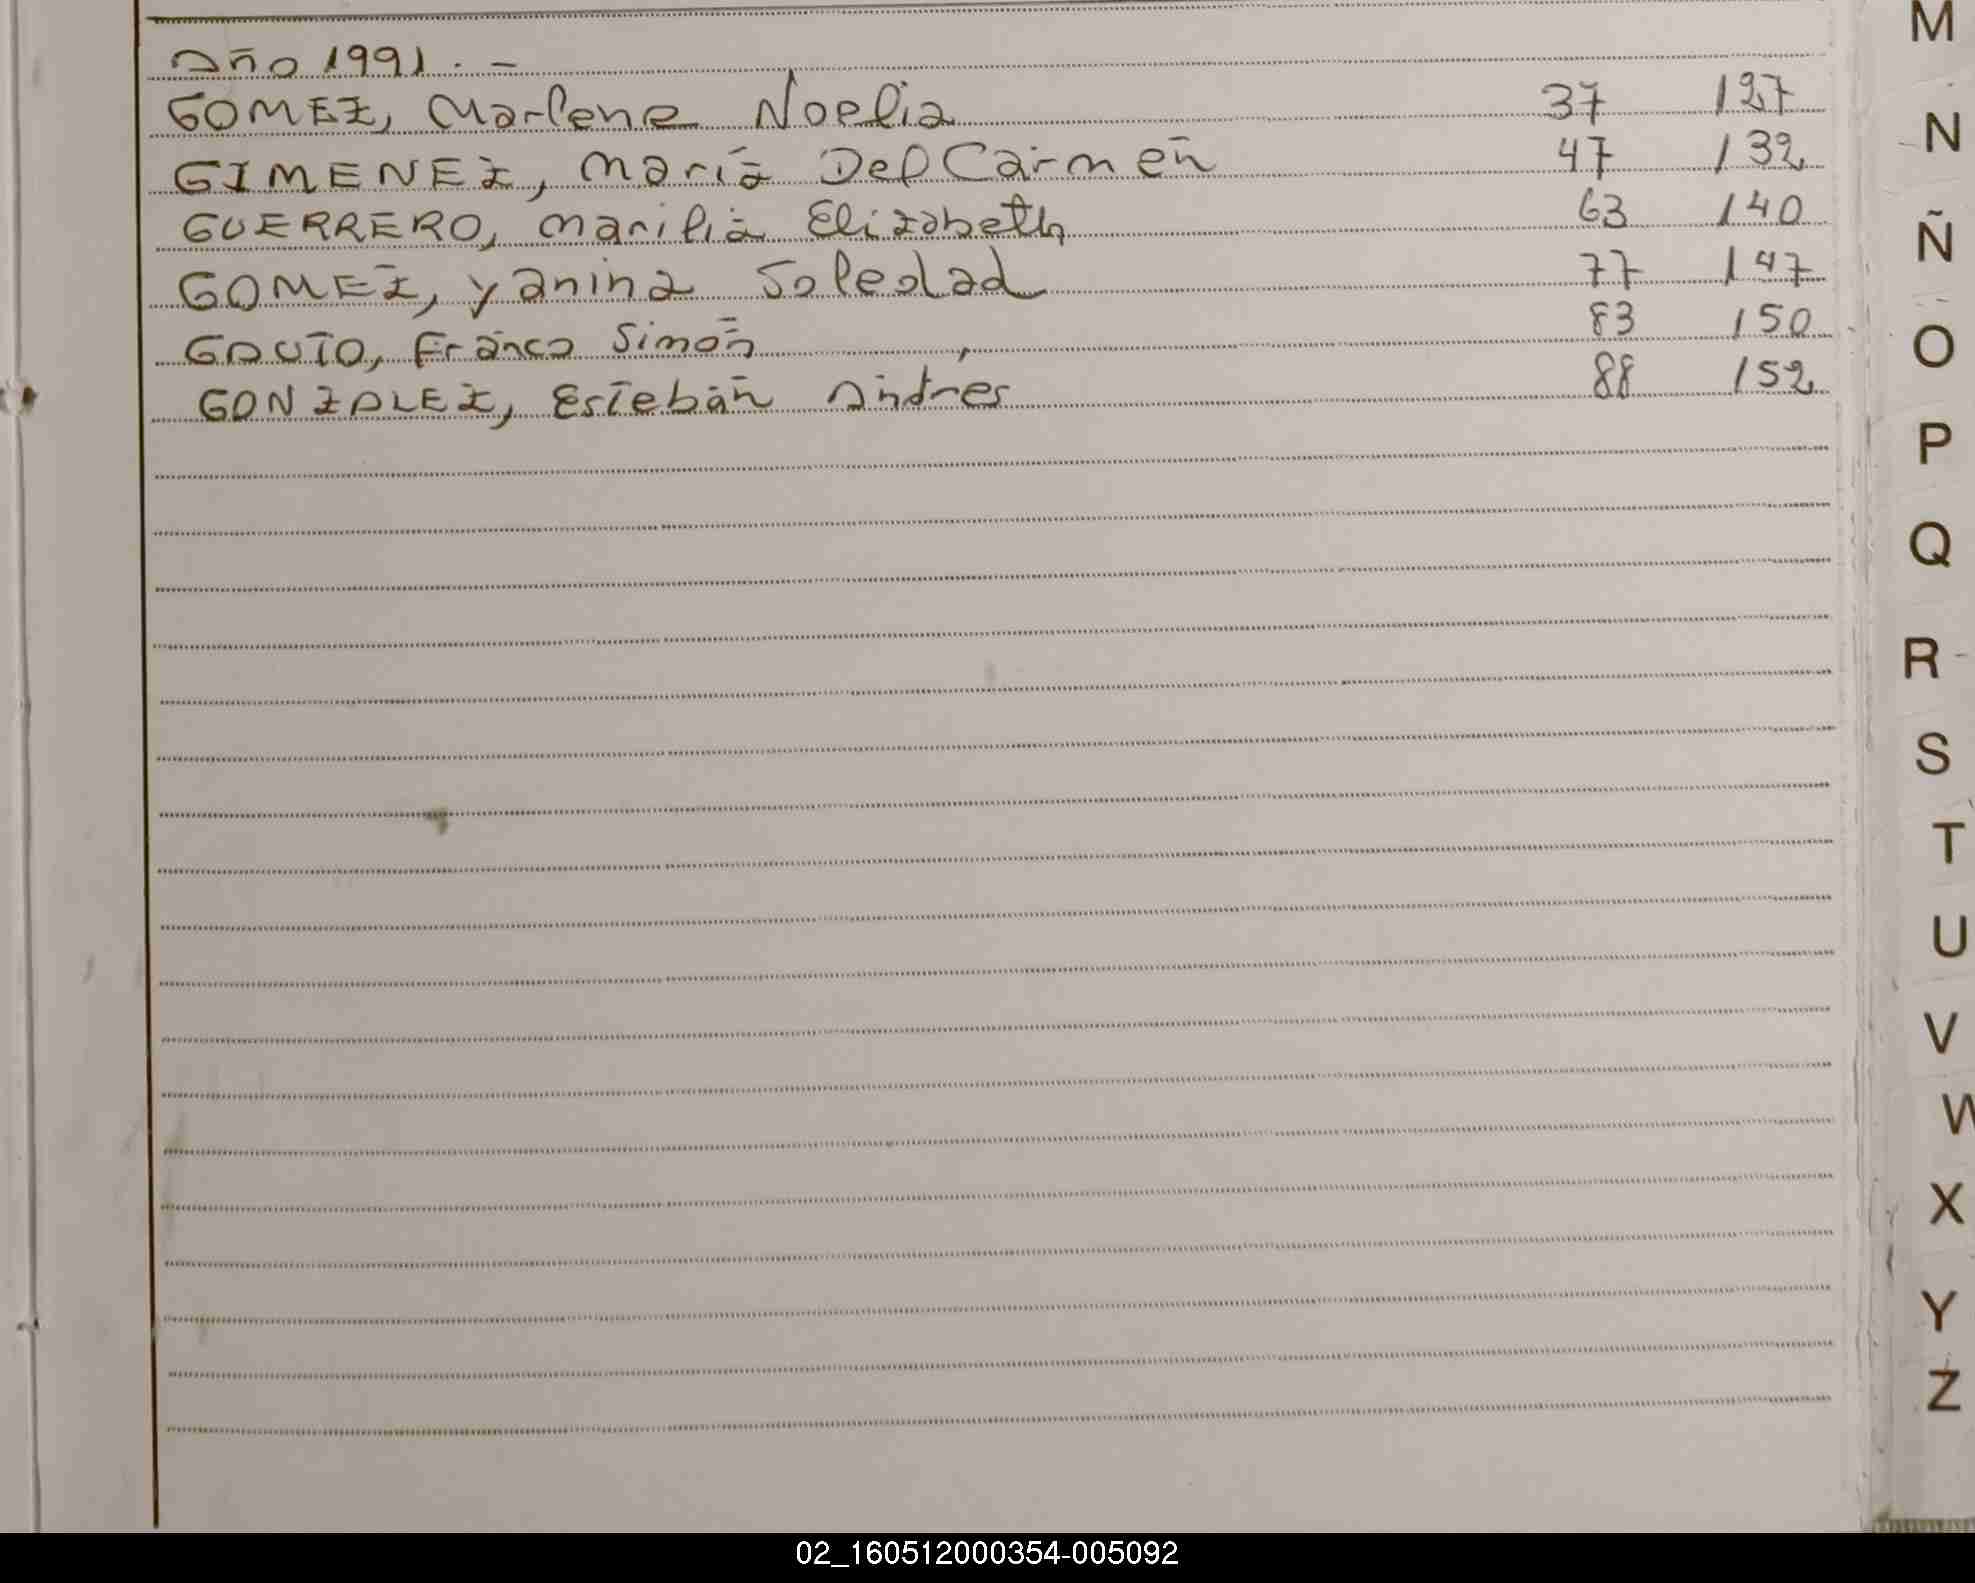 Año 1991. -
GOMEZ, Marlene Noelia 37 127
GIMENEZ, María Del Carmen 47 132
GUERRERO, Marilia Elizabeth 63 140
GOMEZ, Yanina Soledad 77 147
GAUTO, Franco Simón 83 150
GONZALEZ, Esteban Andres 88 152
M
N
Ñ
O
P
Q
R
S
T
U
V
W
X
Y
Z
02_160512000354-005092